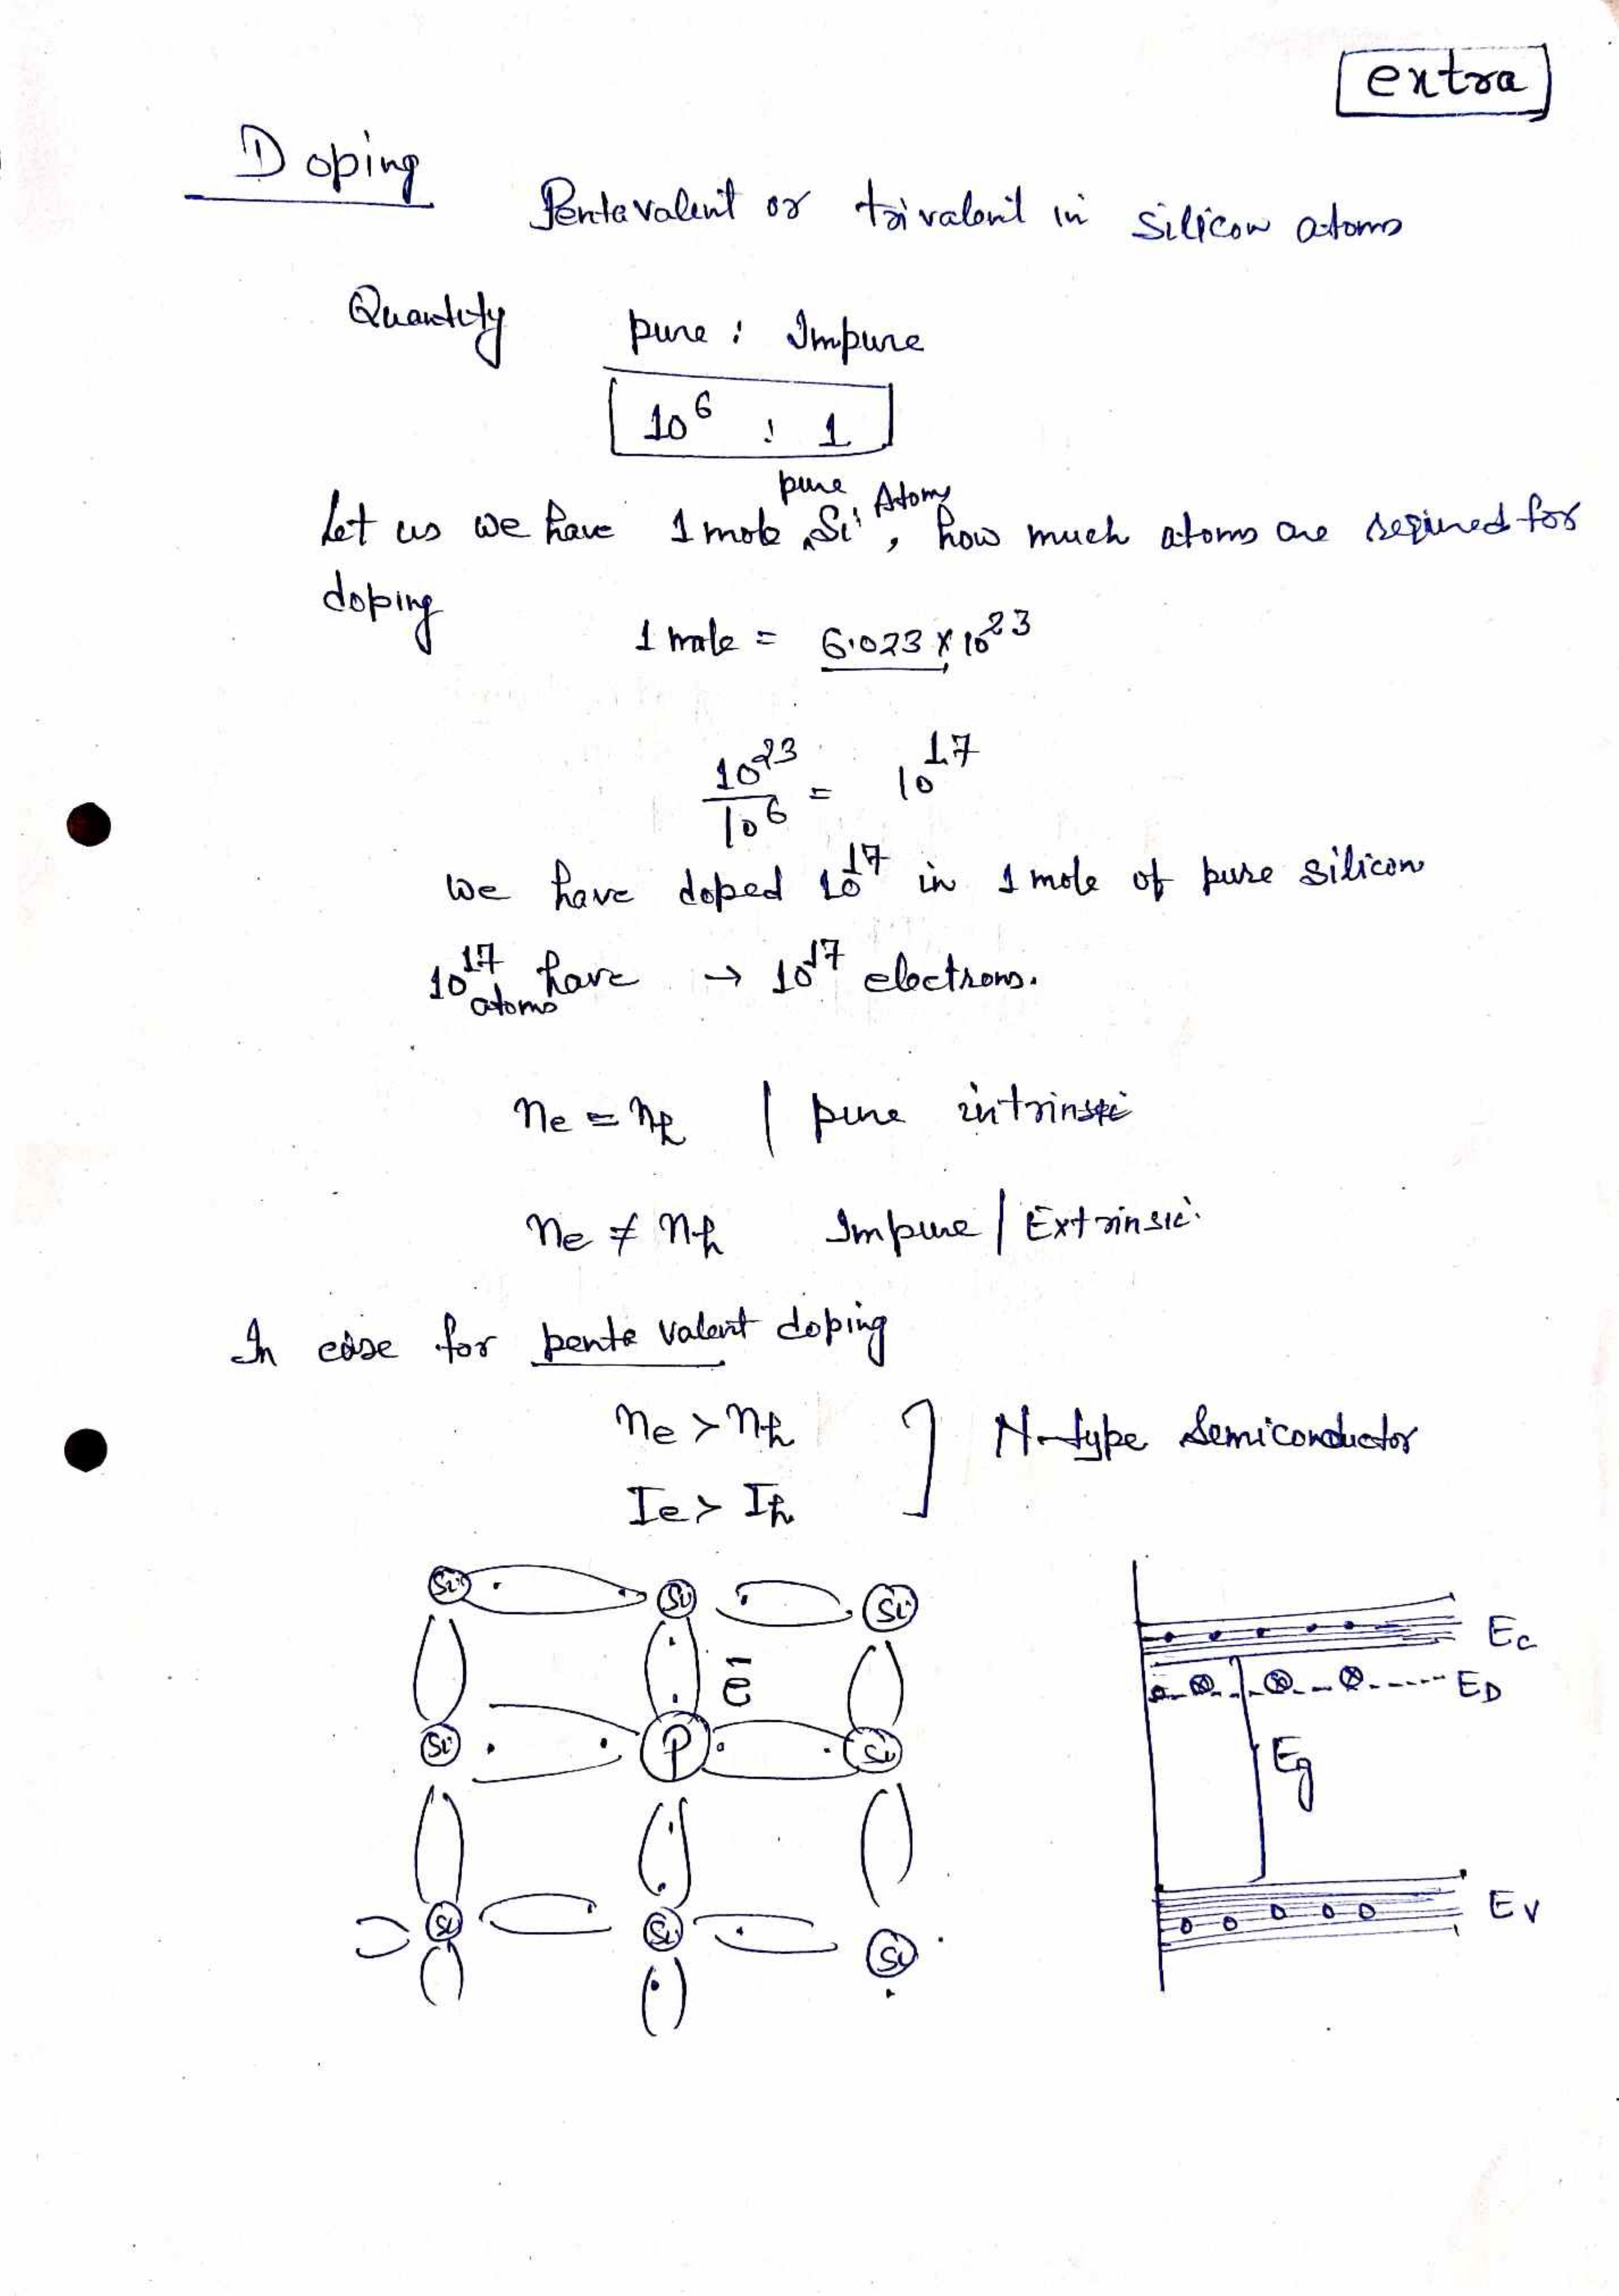 extra
Doping
Pentavalent or trivalent in silicon atoms
Quantity pure : Impure
10^6 : 1
Let us we have 1 mole pure Si Atoms, how much atoms are required for
doping
1 mole = 6.023 × 10^23
10^23 / 10^6 = 10^17
we have doped 10^17 in 1 mole of pure silicon
10^17 atoms have → 10^17 electrons.
ne = nh | pure intrinsic
ne ≠ nh Impure | Extrinsic
In case for penta valent doping
ne > nh
Ie > Ih
] N-type Semiconductor
Si Si Si
ē
Si P Si
Si Si Si
Ec
ED
Eg
Ev